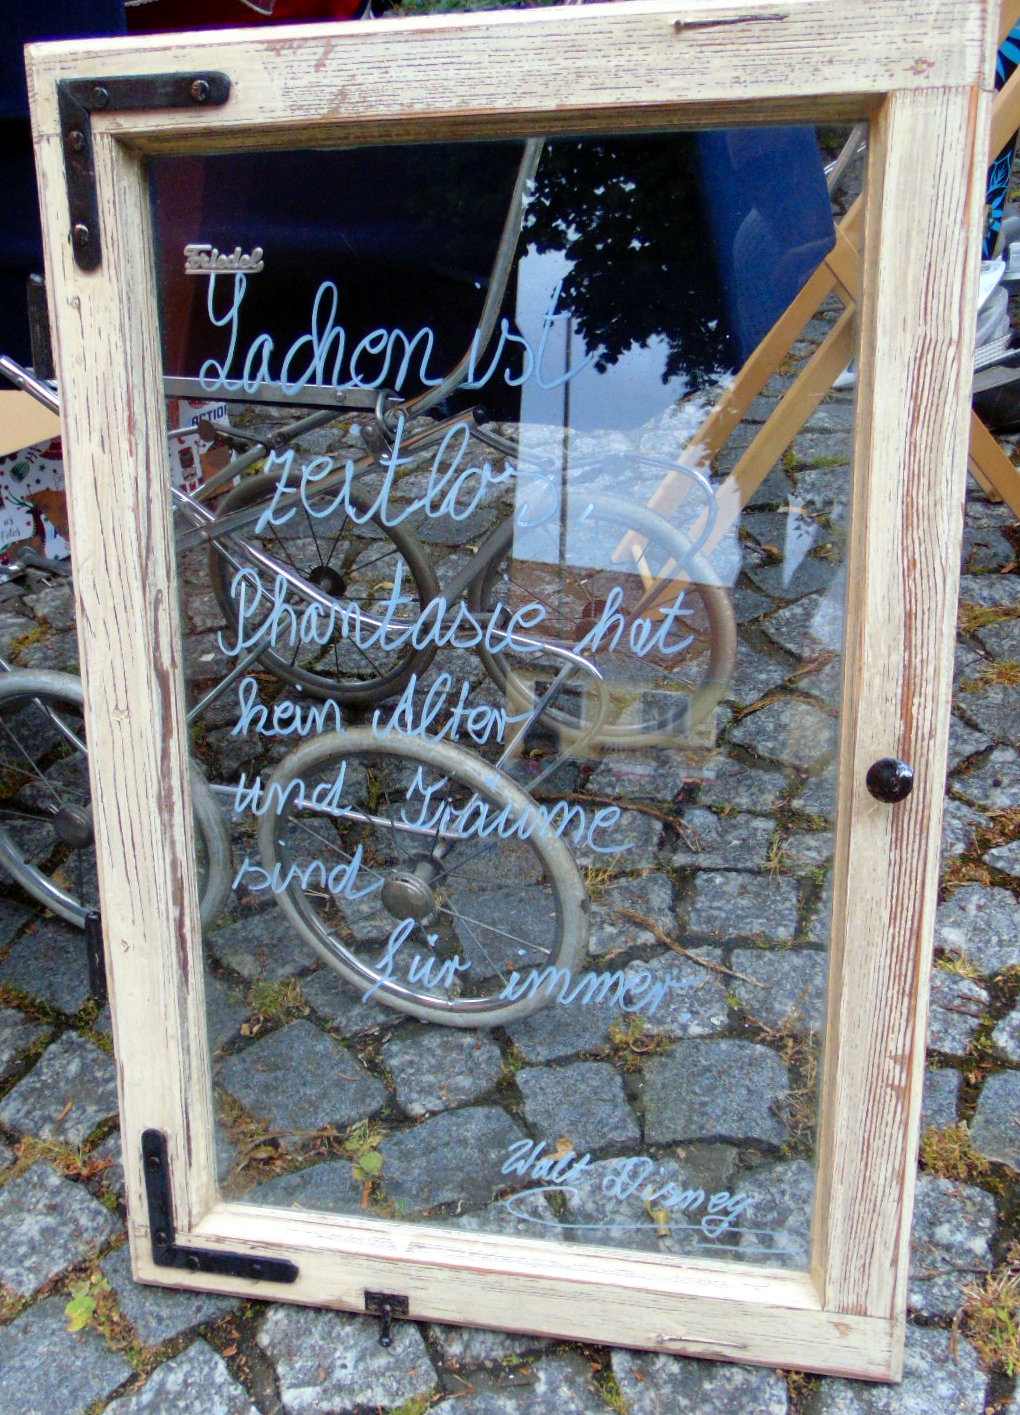 Friedel
Lachen ist
zeitlos,
Phantasie hat
kein Alter
und Träume
sind
für immer
Walt Disney
ACTION